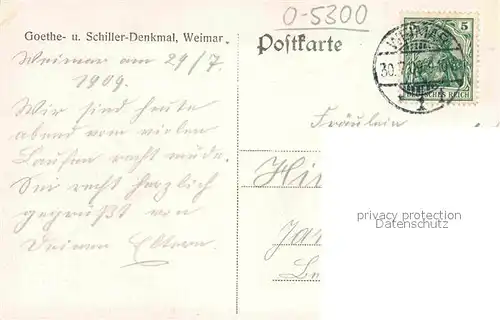 O-5300
Goethe- u. Schiller-Denkmal, Weimar
Postkarte
5 5
WEIMAR
DEUTSCHES REICH
Weimar am 29/7.
1909.
Wir sind heute
abend vom vielen
Laufen recht müde.
Sei recht herzlich
gegrüßt von
Deinen Eltern.
Fräulein
privacy protection
Datenschutz